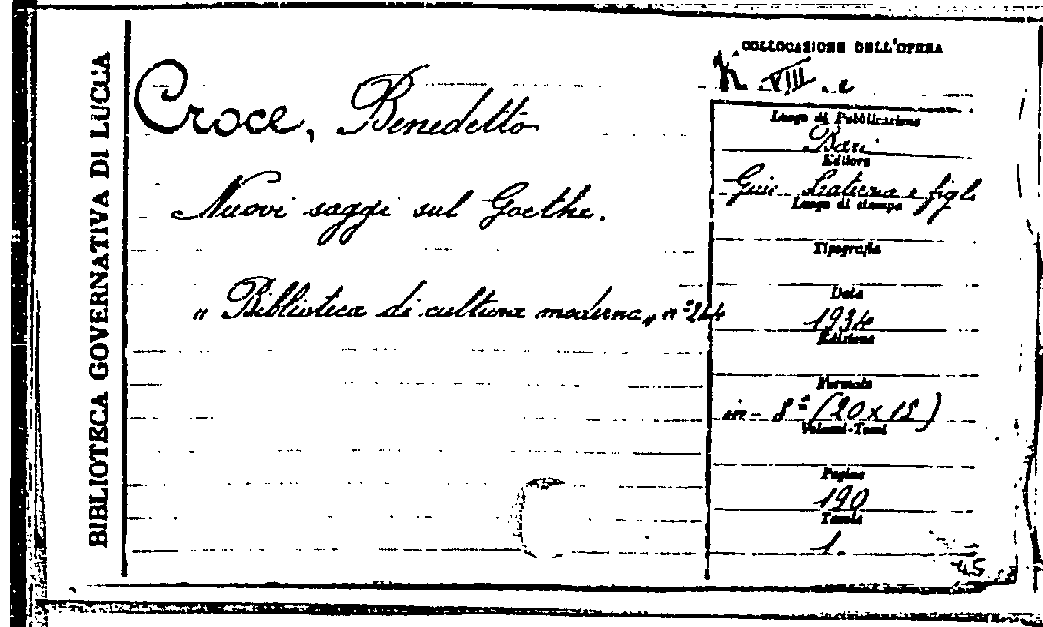 BIBLIOTECA GOVERNATIVA DI LUCCA
Croce, Benedetto
Nuovi saggi sul Goethe.
"Biblioteca di cultura moderna" n° 244
COLLOCAZIONE DELL'OPERA
N. VIII. c
Luogo di Pubblicazione
Bari
Editore
Gius. Laterza e figli
Luogo di stampa
Tipografia
Data
1934
Edizione
Formato
in-8° (20x13)
Volumi-Tomi
Pagine
190
Tavole
1.